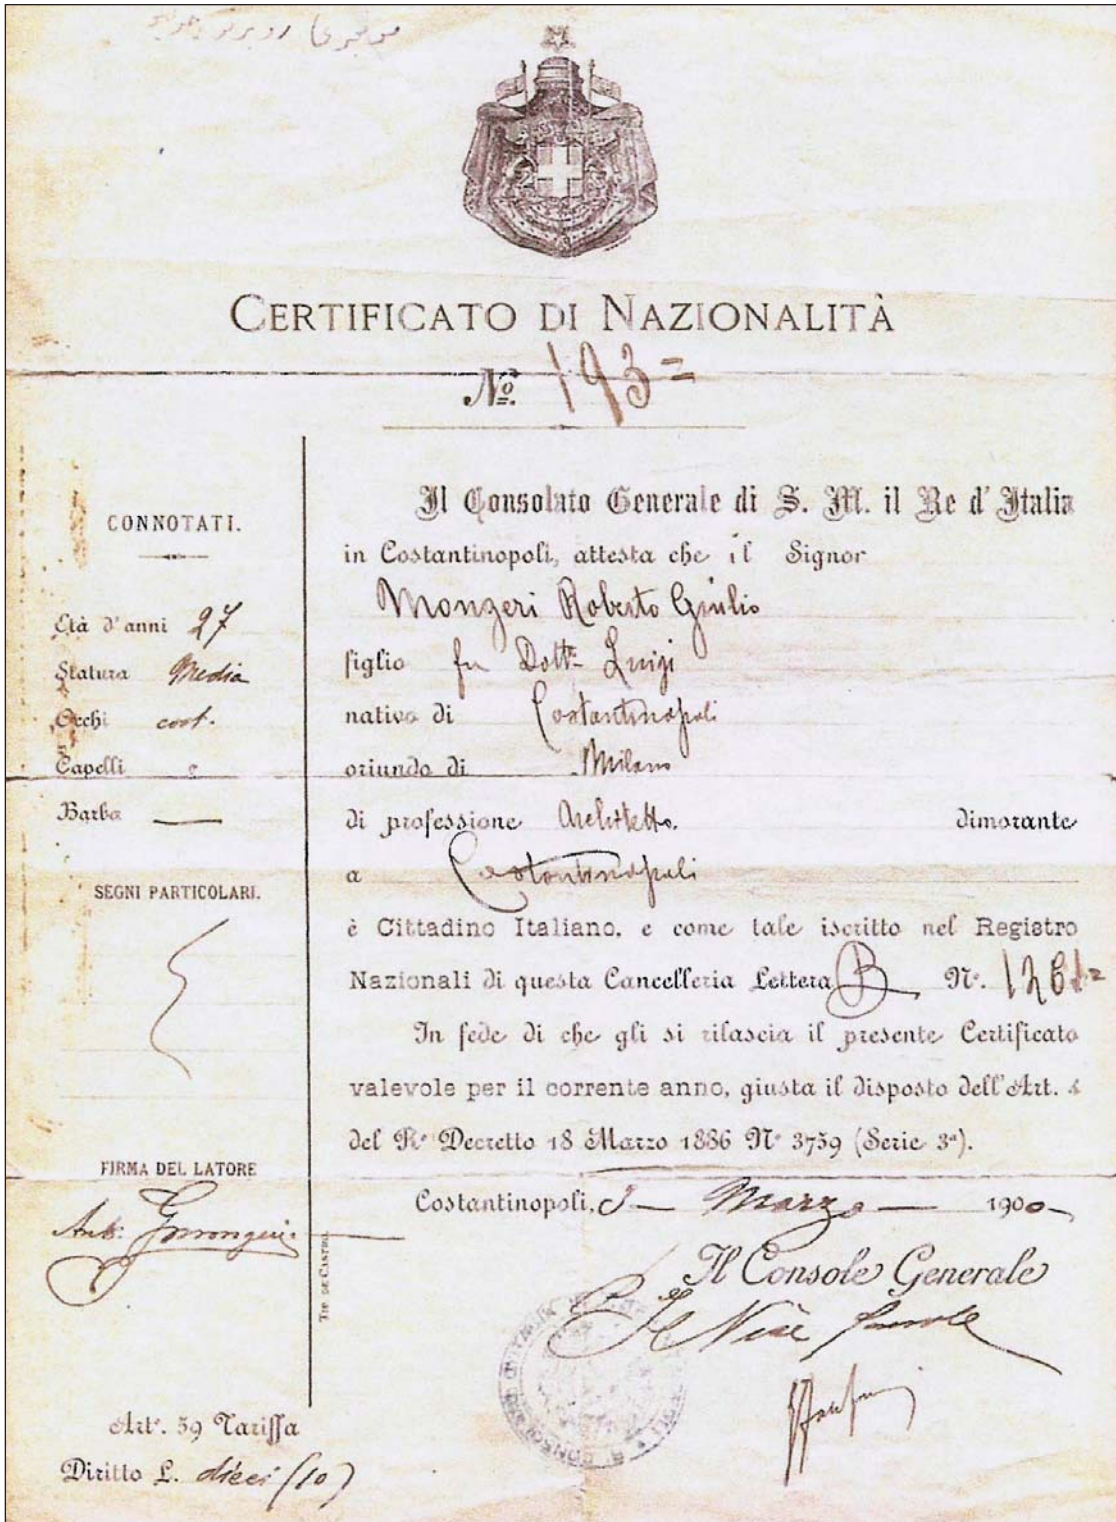 CERTIFICATO DI NAZIONALITÀ
Nº. 193=
CONNOTATI.
Età d'anni 27
Statura Media
Occhi cast.
Capelli
Barba —
SEGNI PARTICOLARI.
FIRMA DEL LATORE
Il Consolato Generale di S. M. il Re d'Italia
in Costantinopoli, attesta che il Signor
Mongeri Roberto Giulio
figlio fu Dott.r Luigi
nativo di Costantinopoli
oriundo di Milano
di professione Architetto. dimorante
a Costantinopoli
è Cittadino Italiano, e come tale iscritto nel Registro
Nazionali di questa Cancelleria Lettera B Nº. 1261=
In fede di che gli si rilascia il presente Certificato
valevole per il corrente anno, giusta il disposto dell'Art.
del Rº Decretto 18 Marzo 1886 Nº 3759 (Serie 3ª).
Costantinopoli, Marzo — 1900
Il Console Generale
Tip. DE CASTRO
Artº. 59 Tariffa
Diritto L. dieci (10)